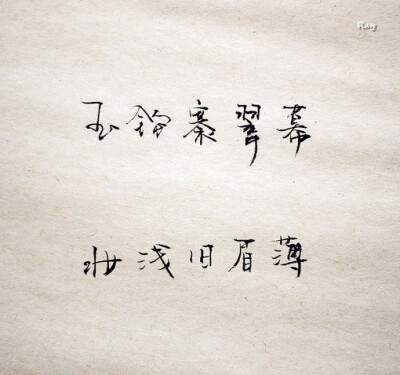 Ray
玉钩褰翠幕
妆浅旧眉薄